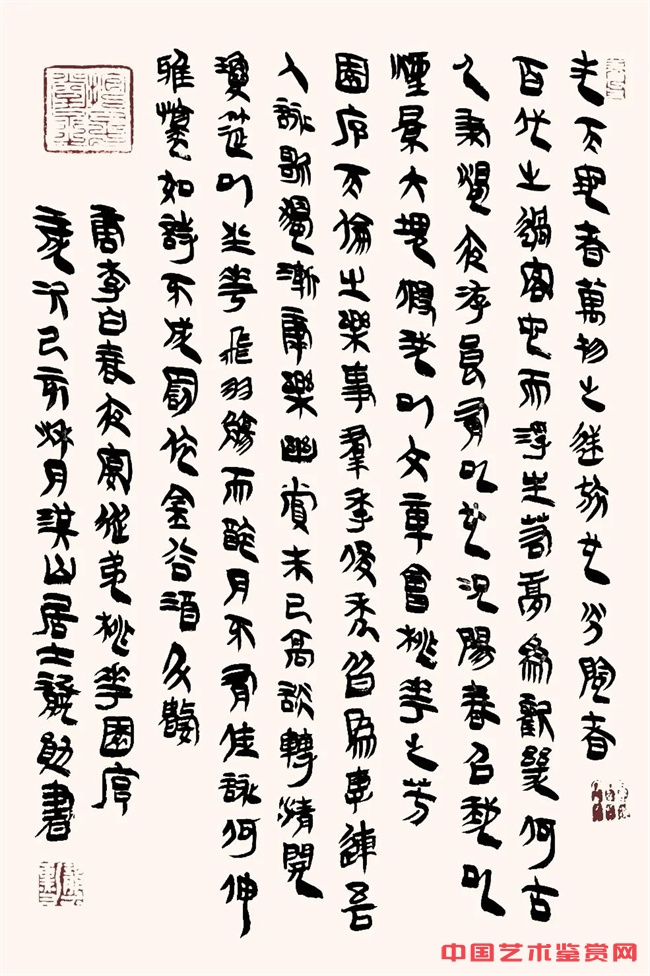 夫天地者萬物之逆旅也光陰者
百代之過客也而浮生若夢為歡幾何古
人秉燭夜游良有以也況陽春召我以
煙景大塊假我以文章會桃李之芳
園序天倫之樂事羣季俊秀皆為惠連吾
人詠歌獨慚康樂幽賞未已高談轉清開
瓊筵以坐花飛羽觴而醉月不有佳詠何伸
雅懷如詩不成罰依金谷酒斗數
唐李白春夜宴從弟桃李園序
歲次己亥秋月淇山居士龔勛書
中国艺术鉴赏网